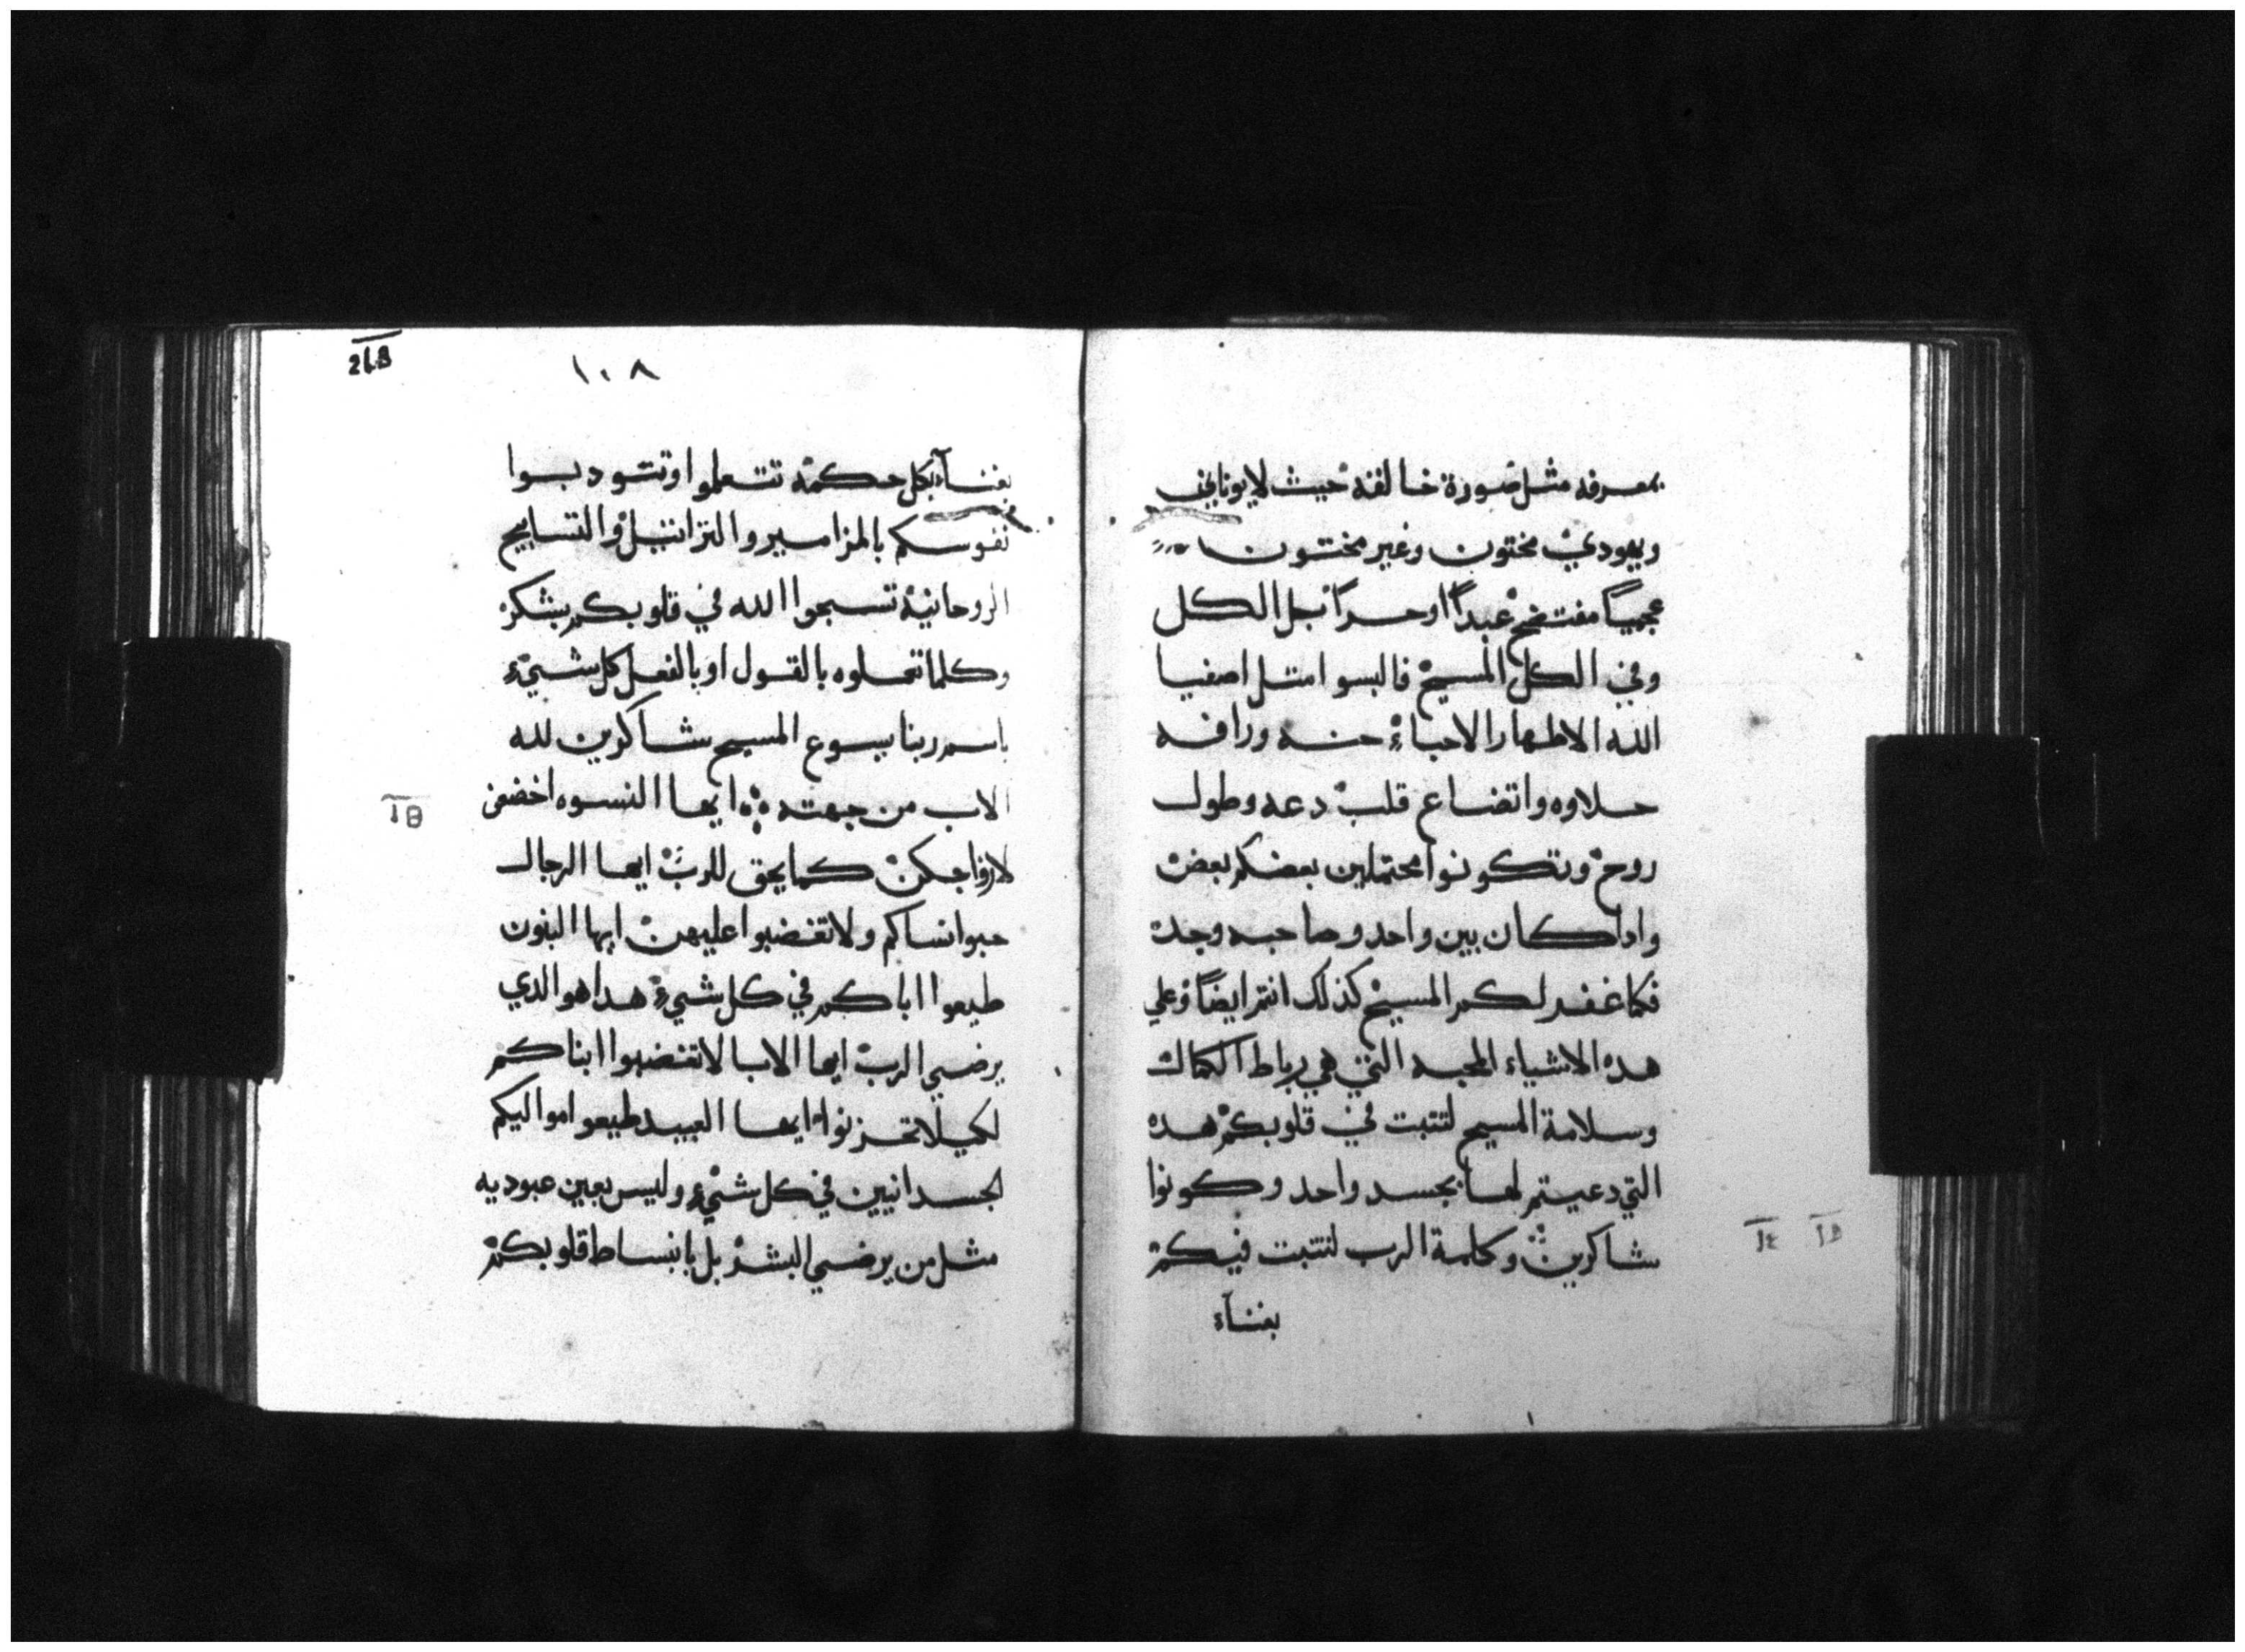 بمعرفه مثل صورة خالقه حيث لا يوناني
ويهودي مختون وغير مختون
عجمياً مفتضح عبداً او حراً بل الكل
وفي الكل المسيح فالبسوا مثل اصفيا
الله الاطهار الاحباء حنه ورافه
حلاوه واتضاع قلب دعه وطول
روح وتكونوا محتملين بعضكم بعض
وادا كان بين واحد وصاحبه وجد
فكما غفر لكم المسيح كذلك انتم ايضاً وعلي
هده الاشياء المحبه التي هي رباط الكمال
وسلامة المسيح لتتبت في قلوبكم هده
التي دعيتم لها بجسد واحد وكونوا
شاكرين وكلمة الرب لتتبت فيكم
بغناء
١٠٨
بغناء بكل حكمة تتعلموا وتتودبوا
نفوسكم بالمزامير والتراتيل والتسابيح
الروحانية تسبحوا الله في قلوبكم بشكر
وكلما تعملوه بالقول او بالفعل كل شيء
باسم ربنا يسوع المسيح شاكرين لله
الاب من جهته ايها النسوه اخضعن
لازواجكن كما يحق للرب ايها الرجال
حبوا نساكم ولا تغضبوا عليهن ايها البنون
طيعوا اباكم في كل شيء هدا هو الدي
يرضي الرب ايها الابا لا تغضبوا ابناكم
لكيلا تحزنوا ايها العبيد طيعوا مواليكم
الجسدانيين في كل شيء وليس بعين عبوديه
مثل من يرضي البشر بل بانبساط قلوبكم